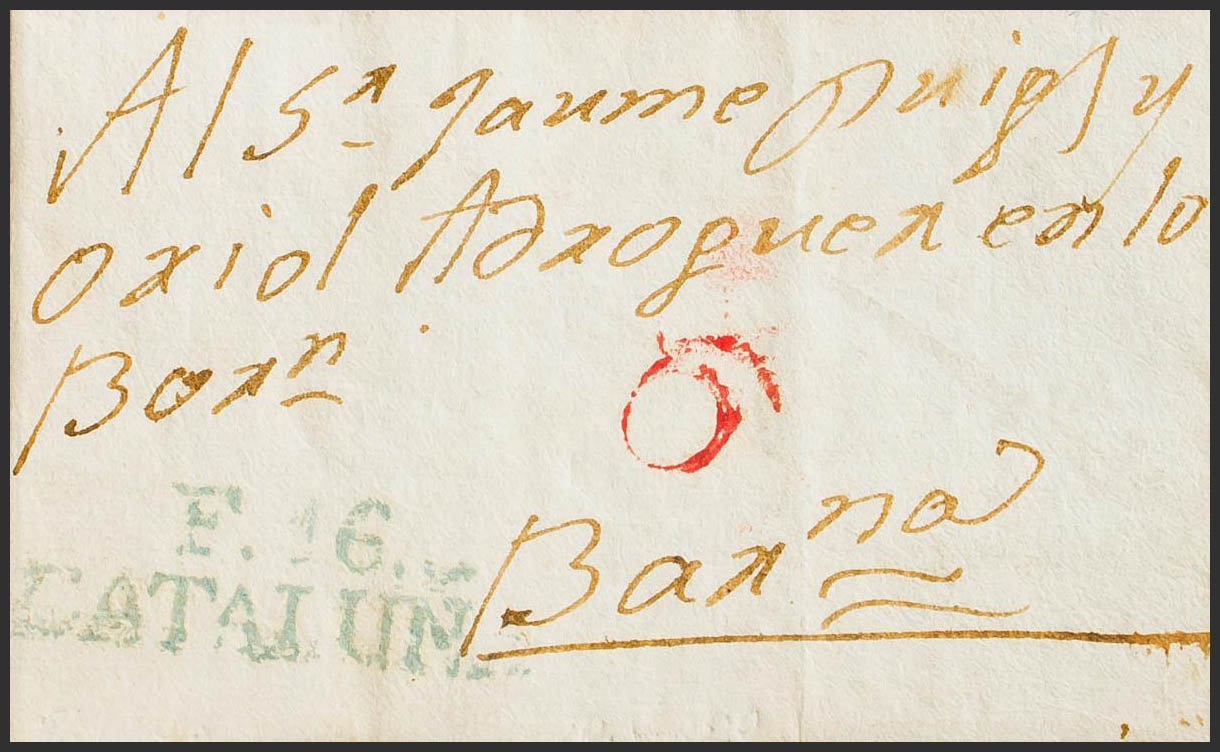 Al Sr Jaume Puig y
oriol Adroguer en lo
Born
F. 16.
CATALUÑA
6
Barna